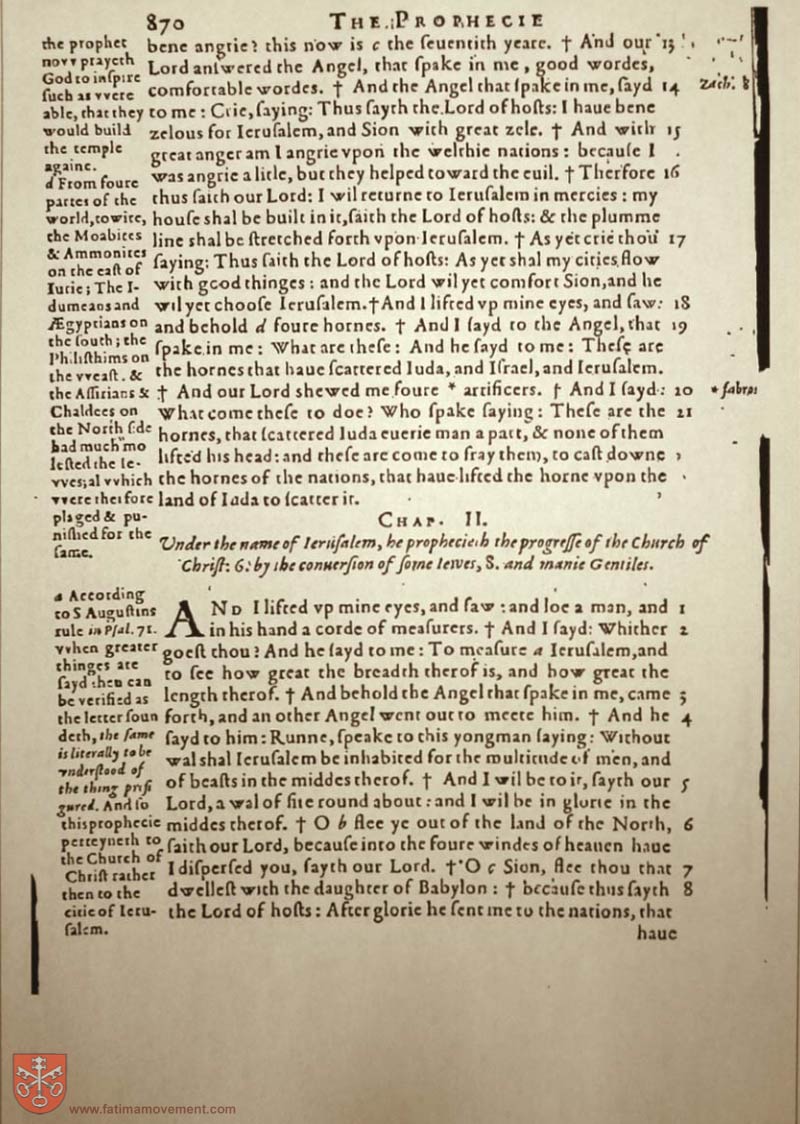 870 THE PROPHECIE
the prophet
novv prayeth
God to inſpire
ſuch as vvere
able, that they
would build
the temple
againe.
d From foure
partes of the
world, to wite,
the Moabites
& Ammonites
on the eaſt of
Iurie; The I-
dumeans and
Ægyptians on
the ſouth; the
Philiſthims on
the vveaſt. &
the Aſſirians &
Chaldees on
the North ſide
had much mo
leſted the Ie-
vves; al vvhich
vvere therfore
plaged & pu-
niſhed for the
ſame.
bene angrie? this now is c the ſeuentith yeare. † And our 13
Lord anſwered the Angel, that ſpake in me, good wordes,
comfortable wordes. † And the Angel that ſpake in me, ſayd 14 Zach. 8
to me: Crie, ſaying: Thus ſayth the Lord of hoſts: I haue bene
zelous for Ieruſalem, and Sion with great zele. † And with 15
great anger am I angrie vpon the welthie nations: becauſe I
was angrie a litle, but they helped toward the euil. † Therfore 16
thus ſaith our Lord: I wil returne to Ieruſalem in mercies: my
houſe shal be built in it, ſaith the Lord of hoſts: & the plumme
line shal be ſtretched forth vpon Ieruſalem. † As yet crie thou 17
ſaying: Thus ſaith the Lord of hoſts: As yet shal my cities flow
with good thinges: and the Lord wil yet comfort Sion, and he
wil yet chooſe Ieruſalem. † And I lifted vp mine eyes, and ſaw: 18
and behold d foure hornes. † And I ſayd to the Angel, that 19
ſpake in me: What are theſe: And he ſayd to me: Theſe are
the hornes that haue ſcattered Iuda, and Iſrael, and Ieruſalem.
† And our Lord shewed me foure * artificers. † And I ſayd: 20 * fabros
What come theſe to doe? Who ſpake ſaying: Theſe are the 21
hornes, that ſcattered Iuda euerie man a part, & none of them
lifted his head: and theſe are come to fray them, to caſt downe
the hornes of the nations, that haue lifted the horne vpon the
land of Iuda to ſcatter it.
CHAP. II.
Vnder the name of Ieruſalem, he prophecieth the progreſſe of the Church of
Chriſt: 6. by the conuerſion of ſome Iewes, 8. and manie Gentiles.
a According
to S Auguſtins
rule in Pſal. 71.
vvhen greater
thinges are
ſayd then can
be verified as
the letter ſoun
deth, the ſame
is literally to be
vnderſtood of
the thing prefi
gured. And ſo
this prophecie
perteyneth to
the Church of
Chriſt rather
then to the
citie of Ieru-
ſalem.
AND I lifted vp mine eyes, and ſaw: and loe a man, and 1
in his hand a corde of meaſurers. † And I ſayd: Whither 2
goeſt thou? And he ſayd to me: To meaſure a Ieruſalem, and
to ſee how great the breadth therof is, and how great the
length therof. † And behold the Angel that ſpake in me, came 3
forth, and an other Angel went out to meete him. † And he 4
ſayd to him: Runne, ſpeake to this yongman ſaying: Without
wal shal Ieruſalem be inhabited for the multitude of men, and
of beaſts in the middes therof. † And I wil be to it, ſayth our 5
Lord, a wal of fire round about: and I wil be in glorie in the
middes therof. † O b flee ye out of the land of the North, 6
ſaith our Lord, becauſe into the foure windes of heauen haue
I diſperſed you, ſayth our Lord. † O c Sion, flee thou that 7
dwelleſt with the daughter of Babylon: † becauſe thus ſayth 8
the Lord of hoſts: After glorie he ſent me to the nations, that
haue
www.fatimamovement.com